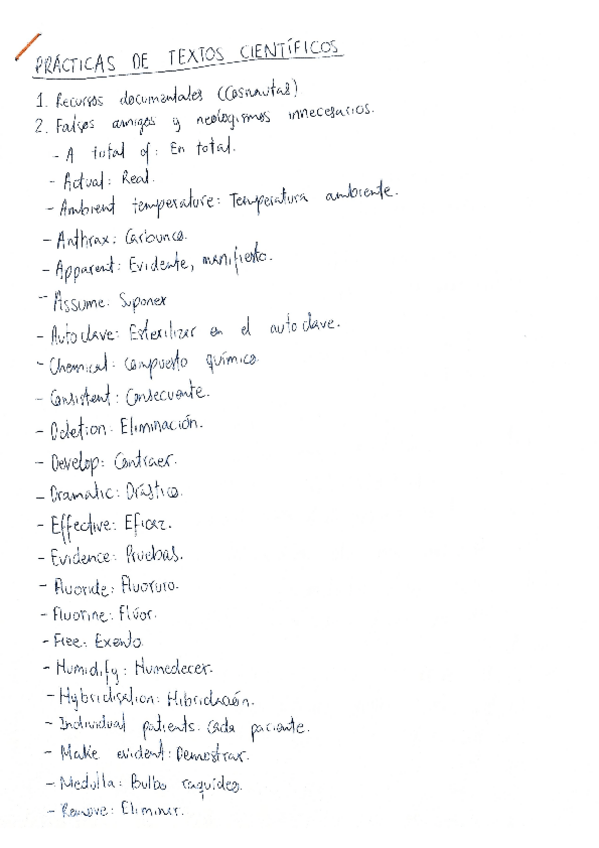 PRÁCTICAS DE TEXTOS CIENTÍFICOS
1. Recursos documentales (Cosnautas)
2. Falsos amigos y neologismos innecesarios.
- A total of: En total.
- Actual: Real.
- Ambient temperature: Temperatura ambiente.
- Anthrax: Carbunco.
- Apparent: Evidente, manifiesto.
- Assume: Suponer
- Autoclave: Esterilizar en el autoclave.
- Chemical: Compuesto químico.
- Consistent: Consecuente.
- Deletion: Eliminación.
- Develop: Contraer.
- Dramatic: Drástico.
- Effective: Eficaz.
- Evidence: Pruebas.
- Fluoride: Fluoruro.
- Fluorine: Flúor.
- Free: Exento.
- Humidify: Humedecer.
- Hybridisation: Hibridación.
- Individual patients: Cada paciente.
- Make evident: Demostrar.
- Medulla: Bulbo raquídeo.
- Remove: Eliminar.